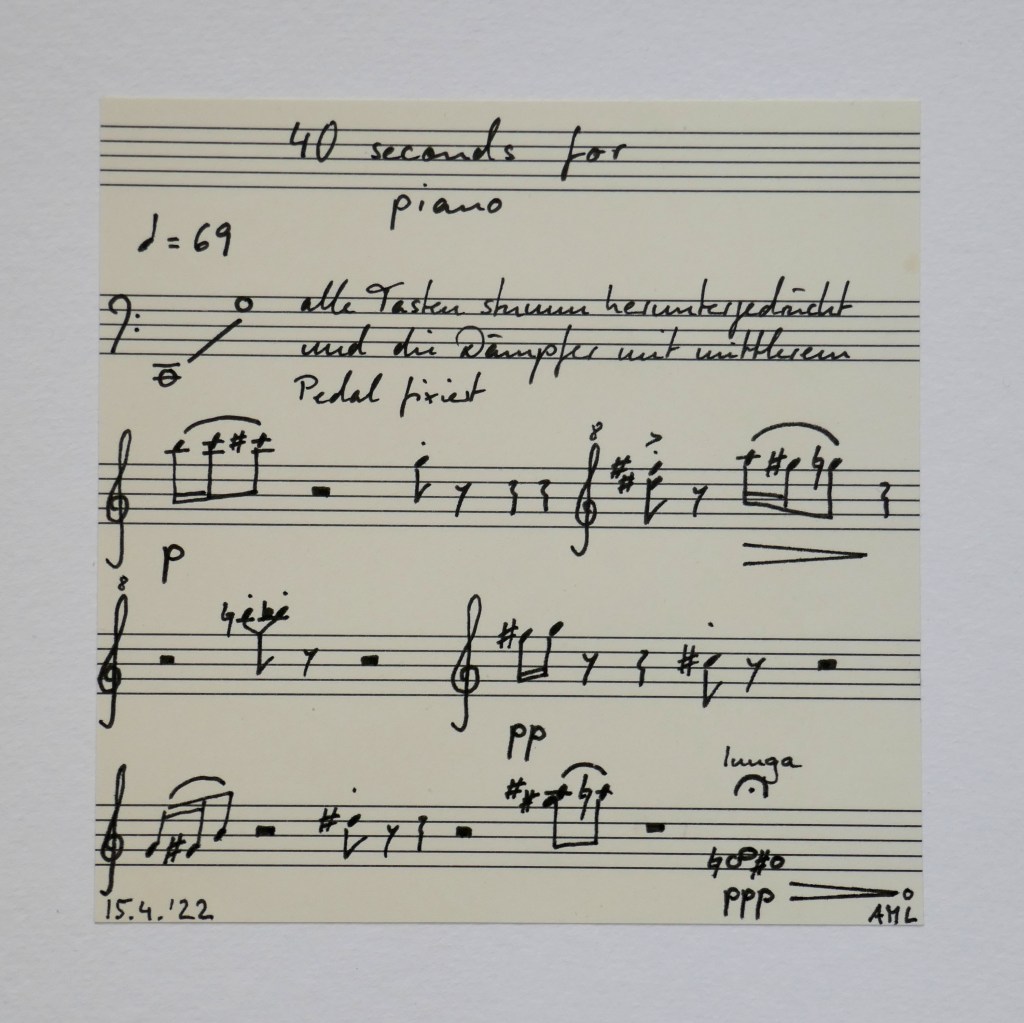 40 seconds for
piano
♩ = 69
alle Tasten stumm heruntergedrückt
und die Dämpfer mit mittlerem
Pedal fixiert
8
p
8
pp
lunga
ppp
15.4.'22
AML